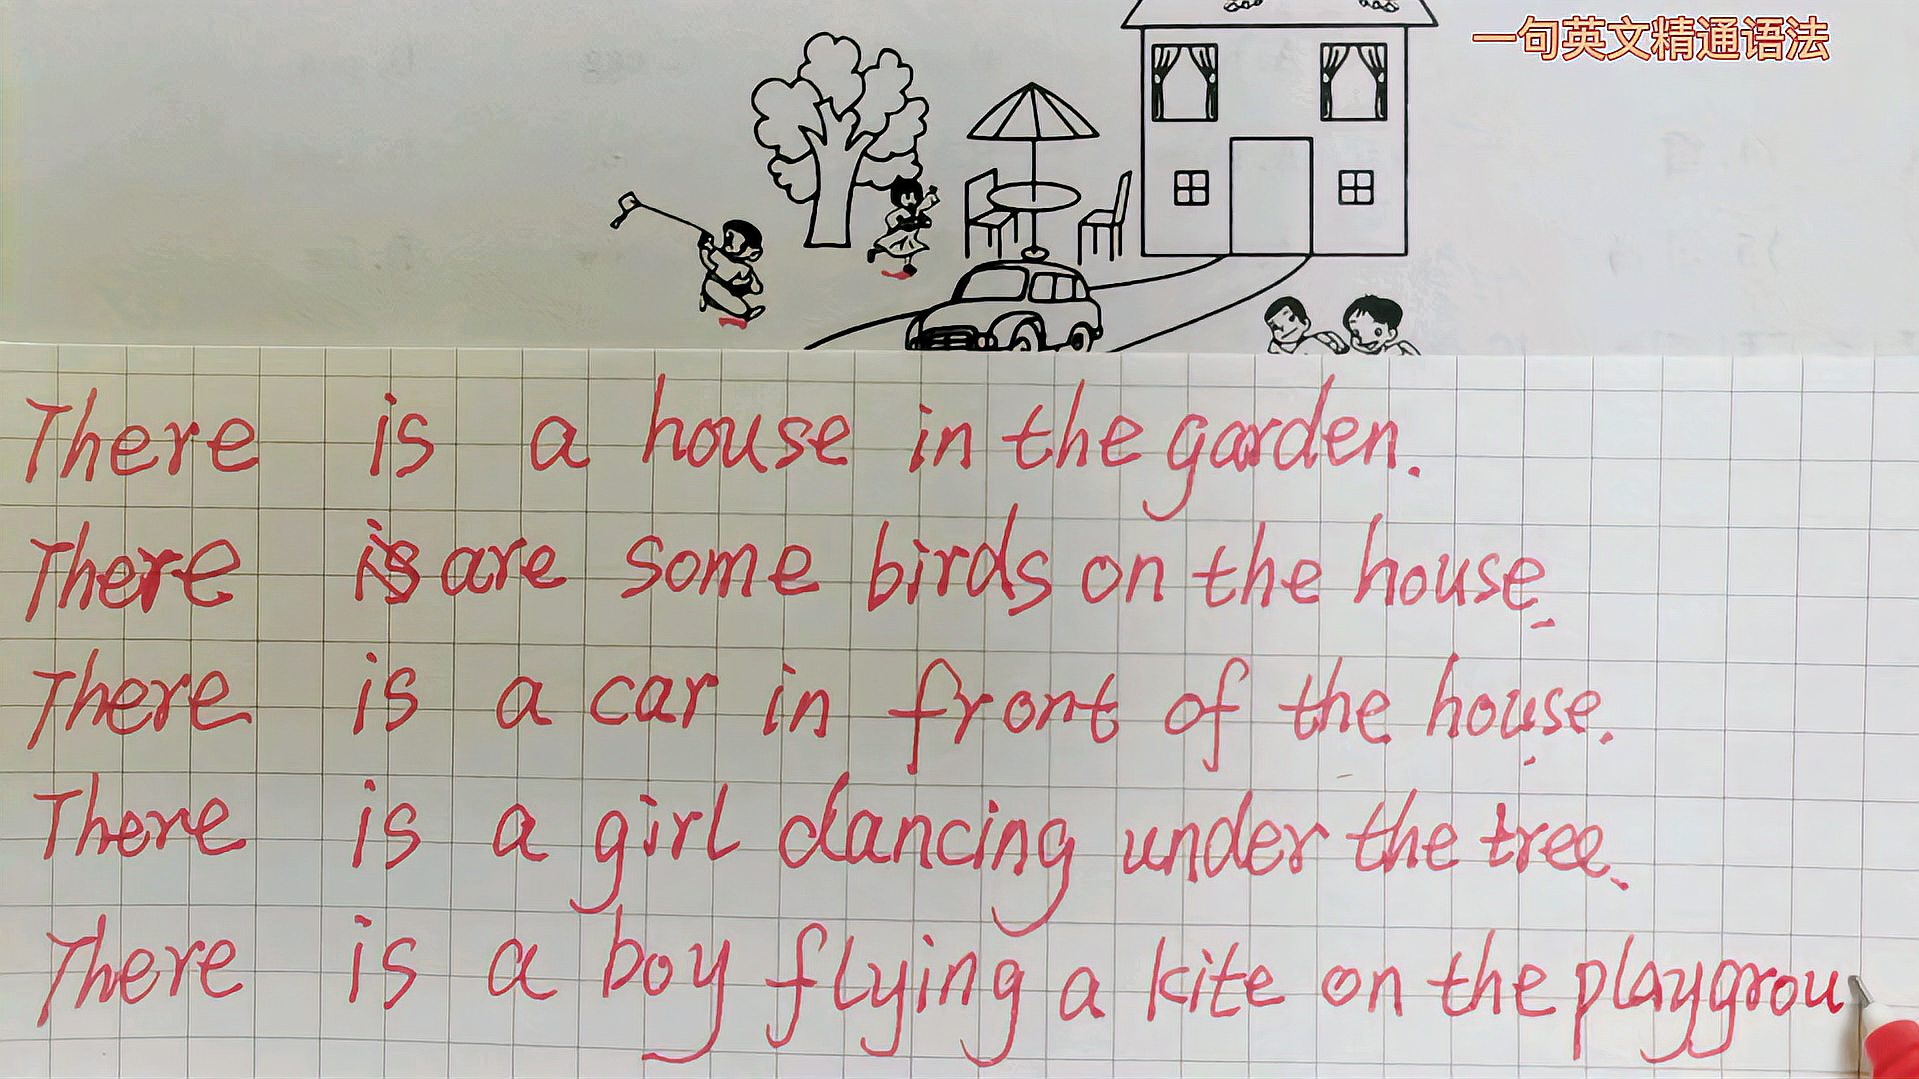 一句英文精通语法
There is a house in the garden.
There is are some birds on the house.
There is a car in front of the house.
There is a girl dancing under the tree.
There is a boy flying a kite on the playgrou